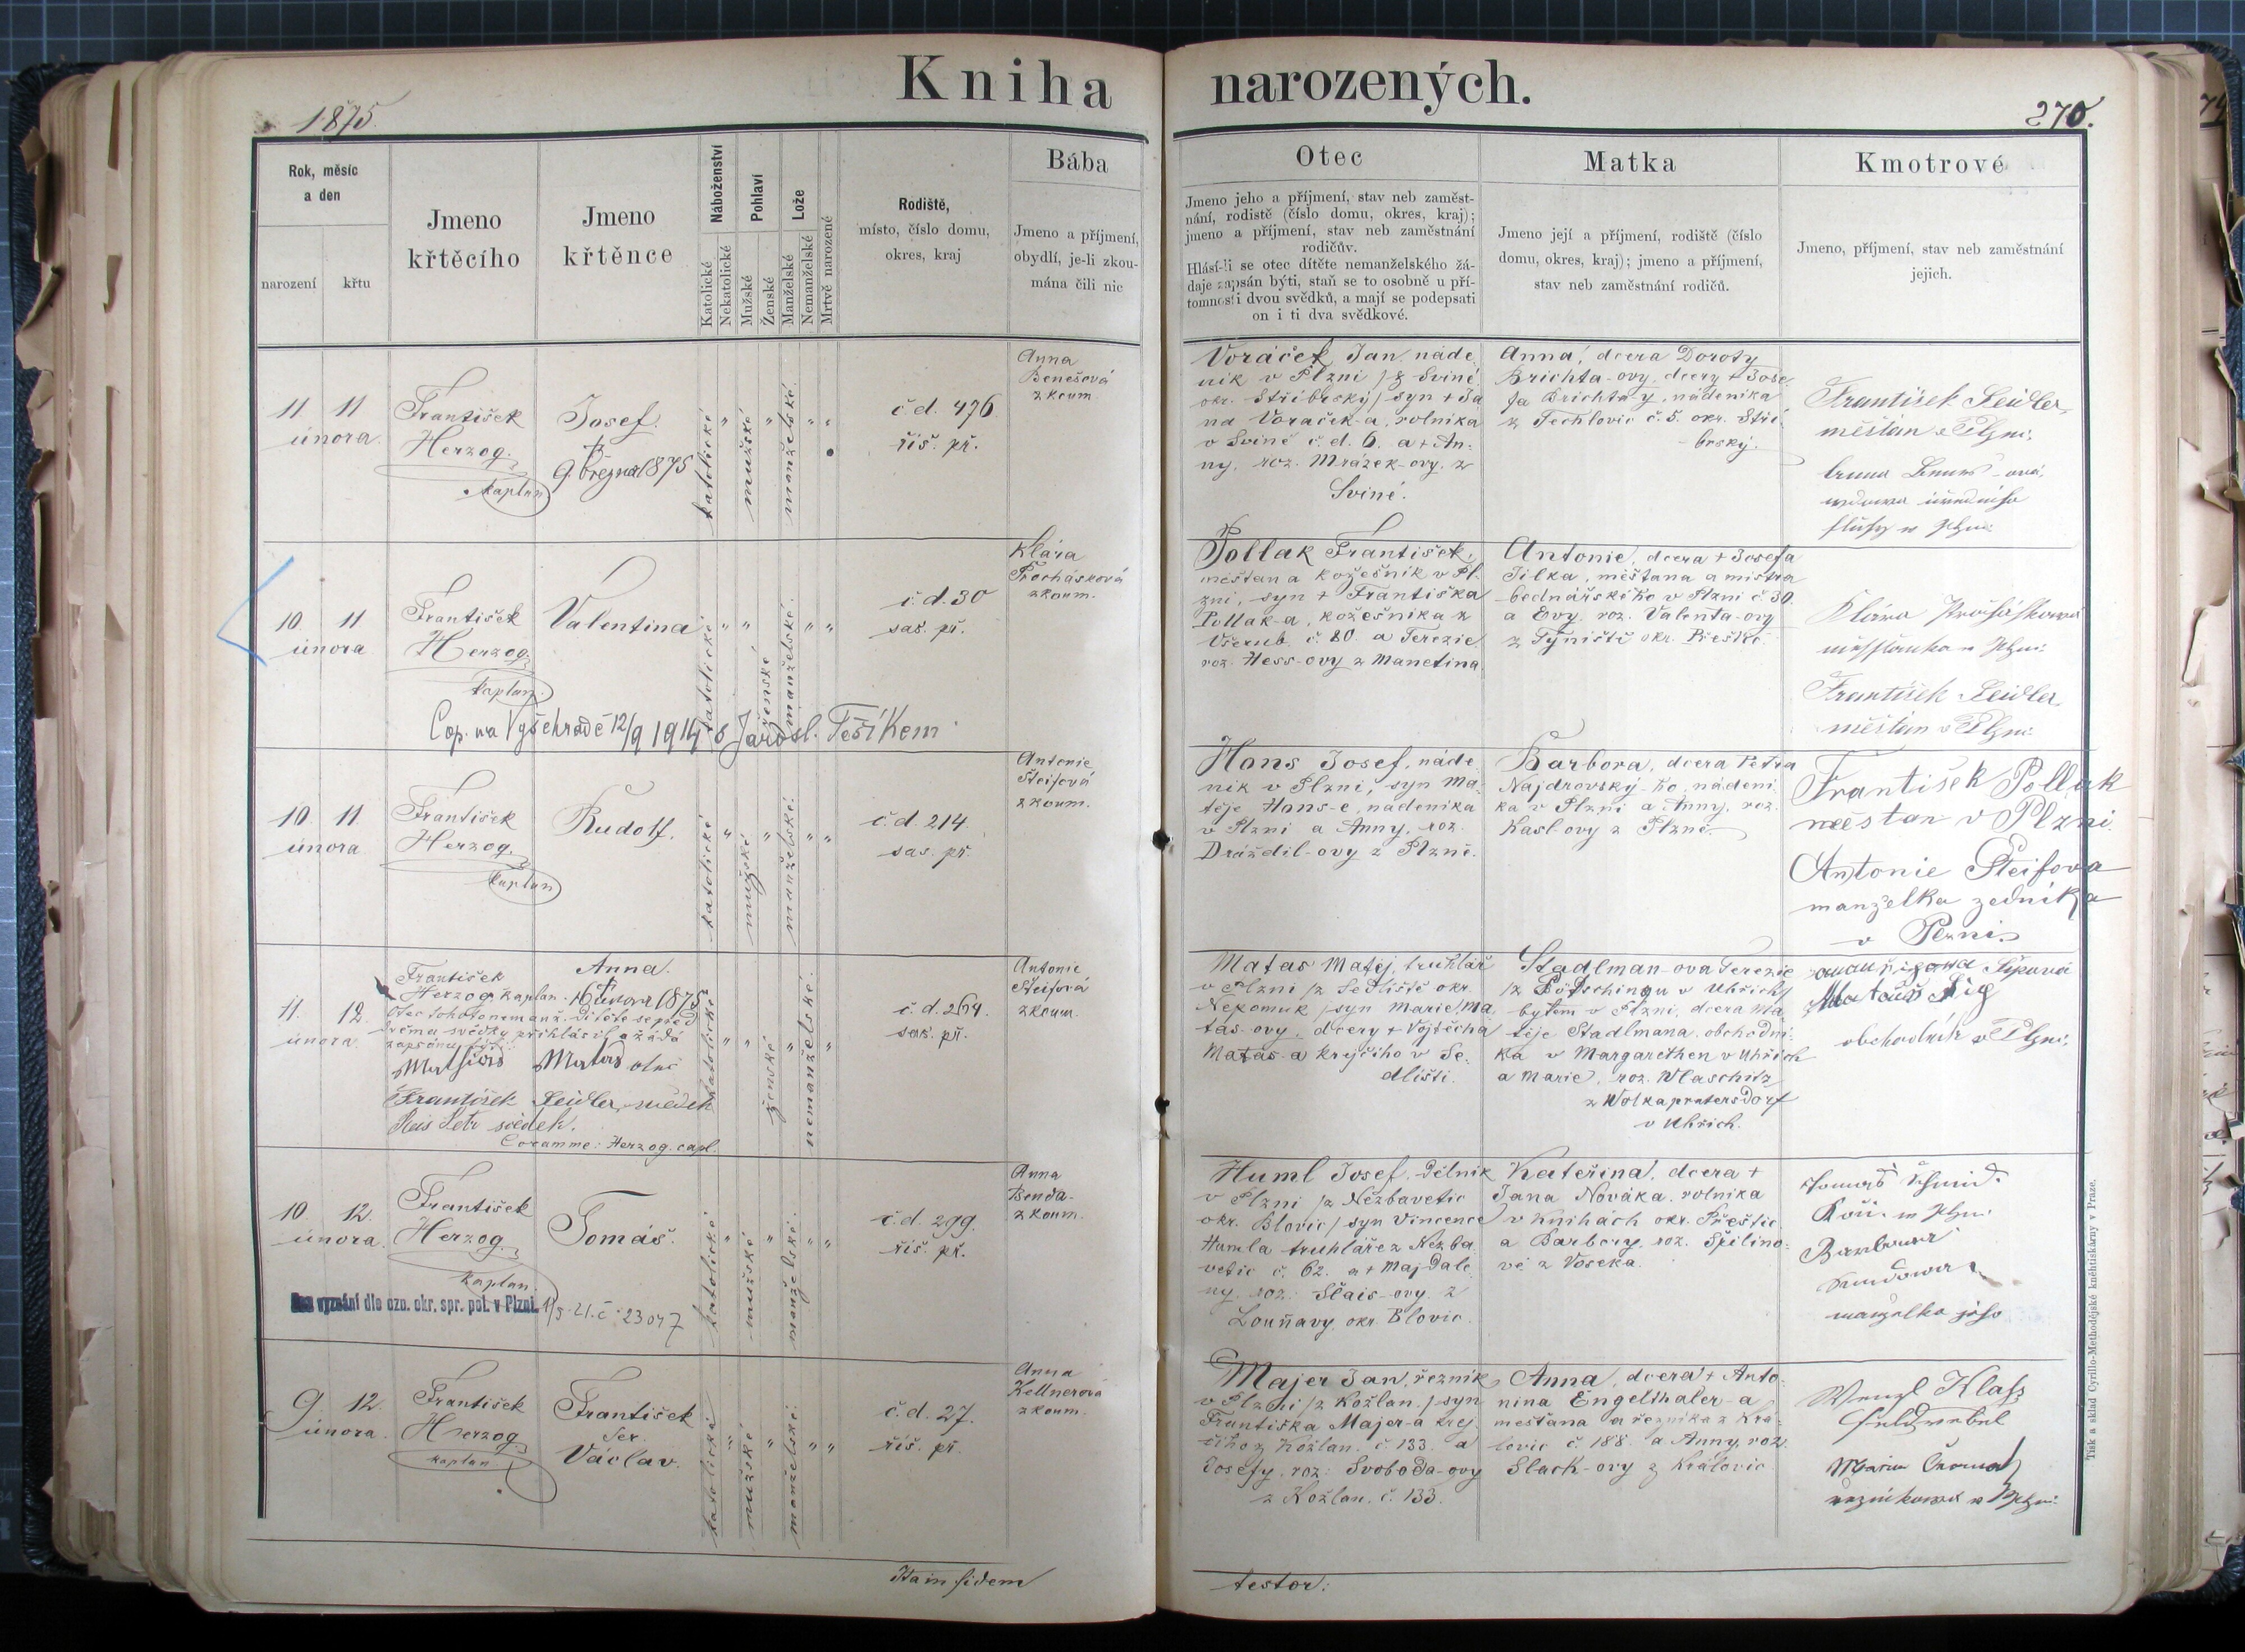 Kniha narozených.
1875.
270.
Rok, měsíc
a den
narození
křtu
Jmeno
křtěcího
Jmeno
křtěnce
Náboženství
Katolické
Nekatolické
Pohlaví
Mužské
Ženské
Lože
Manželské
Nemanželské
Mrtvě narozené
Rodiště,
místo, číslo domu,
okres, kraj
Bába
Jmeno a příjmení,
obydlí, je-li zkou-
mána čili nic
Otec
Jmeno jeho a příjmení, stav neb zaměst-
nání, rodistě (číslo domu, okres, kraj);
jmeno a příjmení, stav neb zaměstnání
rodičův.
Hlásí-li se otec dítěte nemanželského žá-
daje zapsán býti, staň se to osobně u pří-
tomnosti dvou svědků, a mají se podepsati
on i ti dva svědkové.
Matka
Jmeno její a příjmení, rodiště (číslo
domu, okres, kraj); jmeno a příjmení,
stav neb zaměstnání rodičů.
Kmotrové
Jmeno, příjmení, stav neb zaměstnání
jejich.
11. 11
února.
František
Herzog.
kaplan
Josef.
9. března 1875
katolické
mužské
manželské
č. d. 476
říš. př.
Anna
Benešová
zkoum.
Voráček Jan, náde-
ník v Plzni /z Sviné
okr. Stříbrský/ syn + Ja
na Voráček-a, rolníka
v Sviné č. d. 6. a + An-
ny, roz. Mrázek-ovy, z
Sviné.
Anna, dcera Doroty
Brichta-ovy, dcery + Jose-
fa Brichta-y, nádeníka
z Techlovic č. 5. okr. Stří-
brský.
František Seidler,
měštan v Plzni.
10. 11
února
František
Herzog.
kaplan.
Valentina
katolické
ženské
manželské.
č. d. 30
sas. př.
Klára
Procházková
zkoum.
Cop. na Vyšehradě 12/9 1914 s Jarosl. Tešíkem
Pollak František,
měštan a kožešník v Pl-
zni, syn + Františka
Pollak-a, kožešníka z
Všerub. č. 80. a Terezie
roz. Hess-ovy z Manetína.
Antonie, dcera + Josefa
Jílka, měštana a mistra
bednářského v Plzni č 30.
a Evy, roz. Valenta-ovy
z Týniště okr. Přešké.
Klára
František Seidler,
měštan v Plzni
10. 11.
února
František
Herzog.
kaplan
Rudolf.
katolické
mužské
manželské.
č. d. 214.
sas. př.
Antonie
Šteifová
zkoum.
Hans Josef, náde-
ník v Plzni, syn Ma-
těje Hans-e, nádeníka
v Plzni a Anny, roz.
Draždil-ovy z Plzně.
Barbora, dcera Petra
Najdrovský-ho, nádení-
ka v Plzni a Anny, roz.
Kasl-ovy z Plzně.
František Pollak
městan v Plzni.
Antonie Šteifova
manželka zedníka
v Plzni.
11. 12.
února.
František
Herzog kaplan.
Anna.
16 února 1875
Otec tohoto nemanž. dítěte se před
dvěma svědky přihlásil a žádá
Mathias Matas otec
František Seidler, svědek
svědek.
Coramme: Herzog. capl.
katolické
ženské
nemanželské.
č. d. 264.
sas. př.
Antonie
Šteifová
zkoum.
Matas Matěj, truhlář
v Plzni /z Sedliště okr.
Nepomuk/ syn Marie Ma-
tas-ovy, dcery + Vojtěcha
Matas-a krejčího v Se-
dlišti.
Stadlman-ova Terezie
/z Pötschingu v Uhřích/
bytem v Plzni, dcera Ma-
těje Stadlmana, obchodní-
ka v Margarethen v Uhřích
a Marie, roz. Wlaschitz
z Wolkapratersdorf
v Uhřich.
obchodník v Plzni.
10. 12.
února.
František
Herzog.
kaplan.
Tomáš.
Bez vyznání dle ozn. okr. spr. pol. v Plzni. 1/3. 21. č. 23047
katolické
mužské
manželské.
č. d. 299.
říš. př.
Anna
Benda-
zkoum.
Huml Josef, dělník
v Plzni /z Nezbavetic
okr. Blovic/ syn Vincence
Humla truhláře z Nezba-
vetic č. 62. a + Majdale-
ny, roz. Šlais-ovy z
Louňavy okr. Blovic.
Kateřina, dcera +
Jana Nováka, rolníka
v Knihách okr. Přeštic
a Barbory, roz. Špilino-
vé z Voseka.
manželka jeho
9. 12.
února.
František
Herzog.
kaplan.
František
Ser.
Václav.
katolické
mužské
manželské.
č. d. 27.
říš. př.
Anna
Kellnerová
zkoum.
Majer Jan, řezník
v Plzni /z Kožlan./ syn
Františka Majer-a krej-
čího z Kožlan. č 133. a
Josefy, roz. Svoboda-ovy
z Kožlan. č. 133.
Anna, dcera + Anto-
nina Engelthaler-a
mešťana a řezníka z Kra-
lovic č. 188. a Anny, roz.
Slach-ovy z Královic.
Wenzl Klafs
Feldwebel
Tisk a sklad Cyrillo-Methodějské knihtiskárny v Praze.
testor: